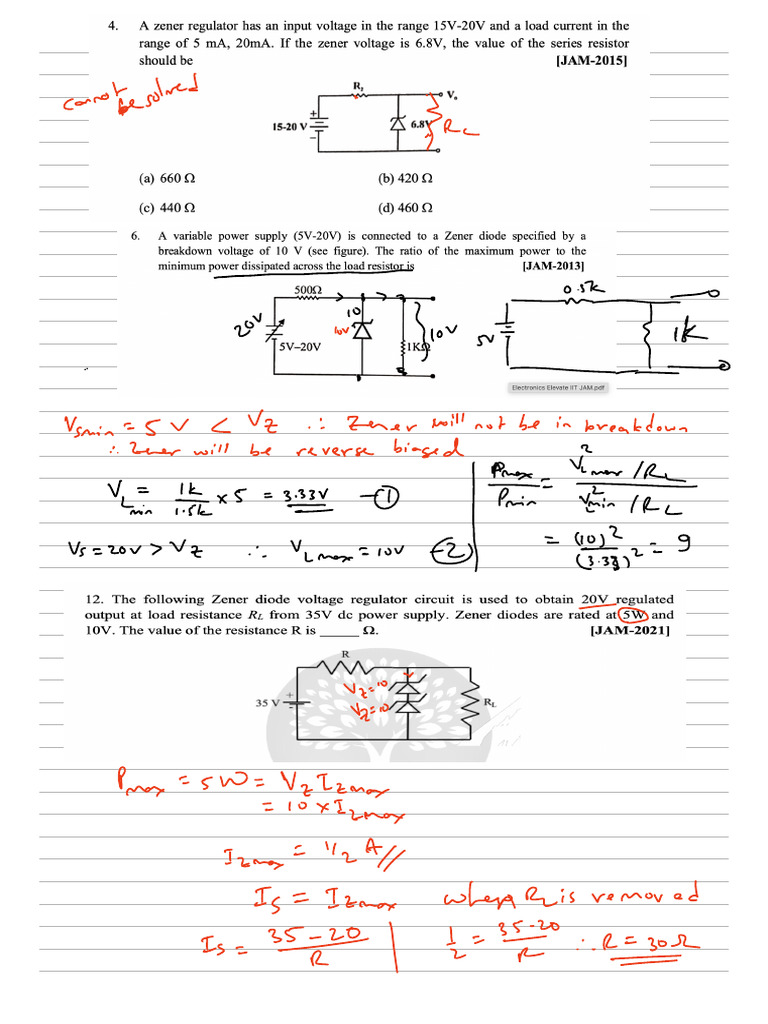 4. A zener regulator has an input voltage in the range 15V-20V and a load current in the
range of 5 mA, 20mA. If the zener voltage is 6.8V, the value of the series resistor
should be [JAM-2015]
cannot
be solved
Rs
Vo
15-20 V
+
-
6.8V
RL
(a) 660 Ω (b) 420 Ω
(c) 440 Ω (d) 460 Ω
6. A variable power supply (5V-20V) is connected to a Zener diode specified by a
breakdown voltage of 10 V (see figure). The ratio of the maximum power to the
minimum power dissipated across the load resistor is [JAM-2013]
500Ω
20V
10
10V
10V
5V–20V
1KΩ
0.5k
5V
1k
Electronics Elevate IIT JAM.pdf
Vsmin = 5 V < VZ ∴ Zener will not be in breakdown
∴ Zener will be reverse biased
VL min = 1k / 1.5k × 5 = 3.33V —①
Pmax / Pmin = VL²max / RL / V²min / RL
Vs = 20V > VZ ∴ VLmax = 10V —②
= (10)² / (3.33)² = 9
12. The following Zener diode voltage regulator circuit is used to obtain 20V regulated
output at load resistance RL from 35V dc power supply. Zener diodes are rated at 5W and
10V. The value of the resistance R is ______ Ω. [JAM-2021]
R
35 V
+
VZ=10
VZ=10
RL
Pmax = 5W = VZ IZmax
= 10 × IZmax
IZmax = 1/2 A //
IS = IZmax when RL is removed
IS = 35-20 / R | 1/2 = 35-20 / R ∴ R = 30Ω